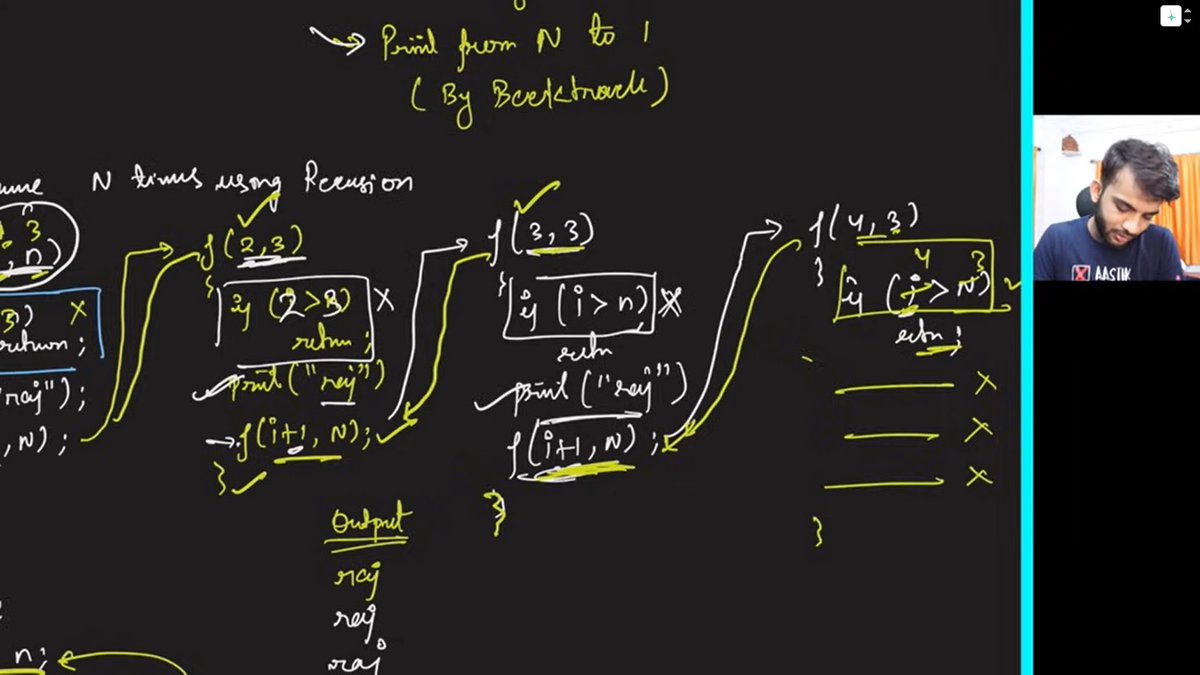 → Print from N to 1
(By Backtrack)
N times using Recursion
3
, n)
3) X
return ;
"raj");
, N) ;
f(2,3)
{
if (2>3) X
return ;
print("raj")
→ f(i+1, N);
}
f(3,3)
{
if (i>n) X
retn
print("raj")
f(i+1, N) ;
}
f(4,3)
{
4 3
if (i>N)
retn ;
X
X
X
}
Output
raj
raj
raj
n;
AASTIK